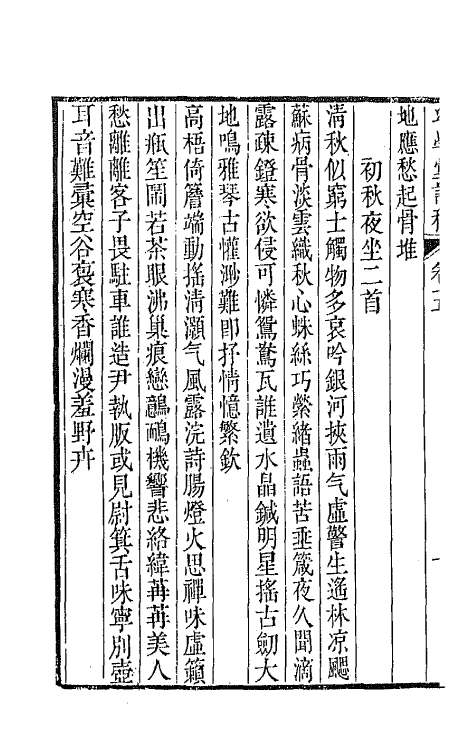 地應愁起骨堆
初秋夜坐二首
清秋似窮士觸物多哀吟銀河挾雨气虛警生遙林凉颸
蘇病骨淡雲織秋心蛛絲巧縈緒蟲語苦垂箴夜久聞滴
露疎鐙寒欲侵可憐鴛鴦瓦誰遺水晶鍼明星搖古劒大
地鳴雅琴古懽渺難即抒情憶繁欽
高梧倚簷端動搖清灝气風露浣詩腸燈火思禪味虛籟
出瓶笙鬧若茶眼沸巢痕戀鸕鷀機響悲絡緯苒苒美人
愁離離客子畏駐車誰造尹執版或見尉箕舌味寧別壺
耳音難彙空谷裛寒香爛漫羞野卉